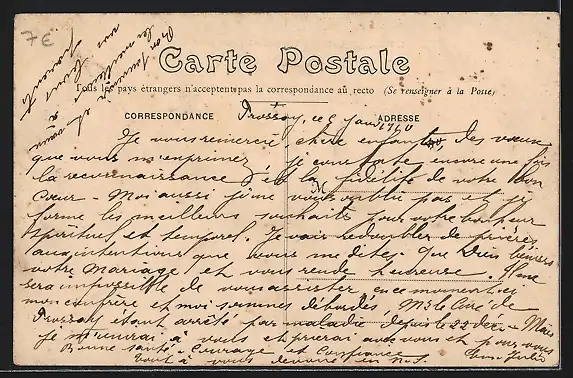 7€
Bon souvenir
les meilleurs
Carte Postale
Tous les pays étrangers n'acceptent pas la correspondance au recto (Se renseigner à la Poste)
CORRESPONDANCE
ADRESSE
Prossay, ce 8 janv 1910
Je vous remercie chère enfant, des vœux
que vous m'exprimez. Je constate encore une fois
la reconnaissance et la fidélité de votre bon
M
cœur - Moi aussi je ne vous oublie pas et je
forme les meilleurs souhaits pour votre bonheur
spirituel et temporel. Je vais redoubler de prières
aux intentions que vous me dites. Que Dieu bénisse
votre mariage et vous rende heureuse. Il me
sera impossible de vous assister en ce moment
mon confrère et moi sommes débordés, Mr le Curé de
Prossay étant arrêté par maladie depuis le 22 déc. - Mais
je m'unirai à vous et prierai avec vous et pour vous
Bonne santé - Courage et Confiance
Tout à vous dévoué en N.S.